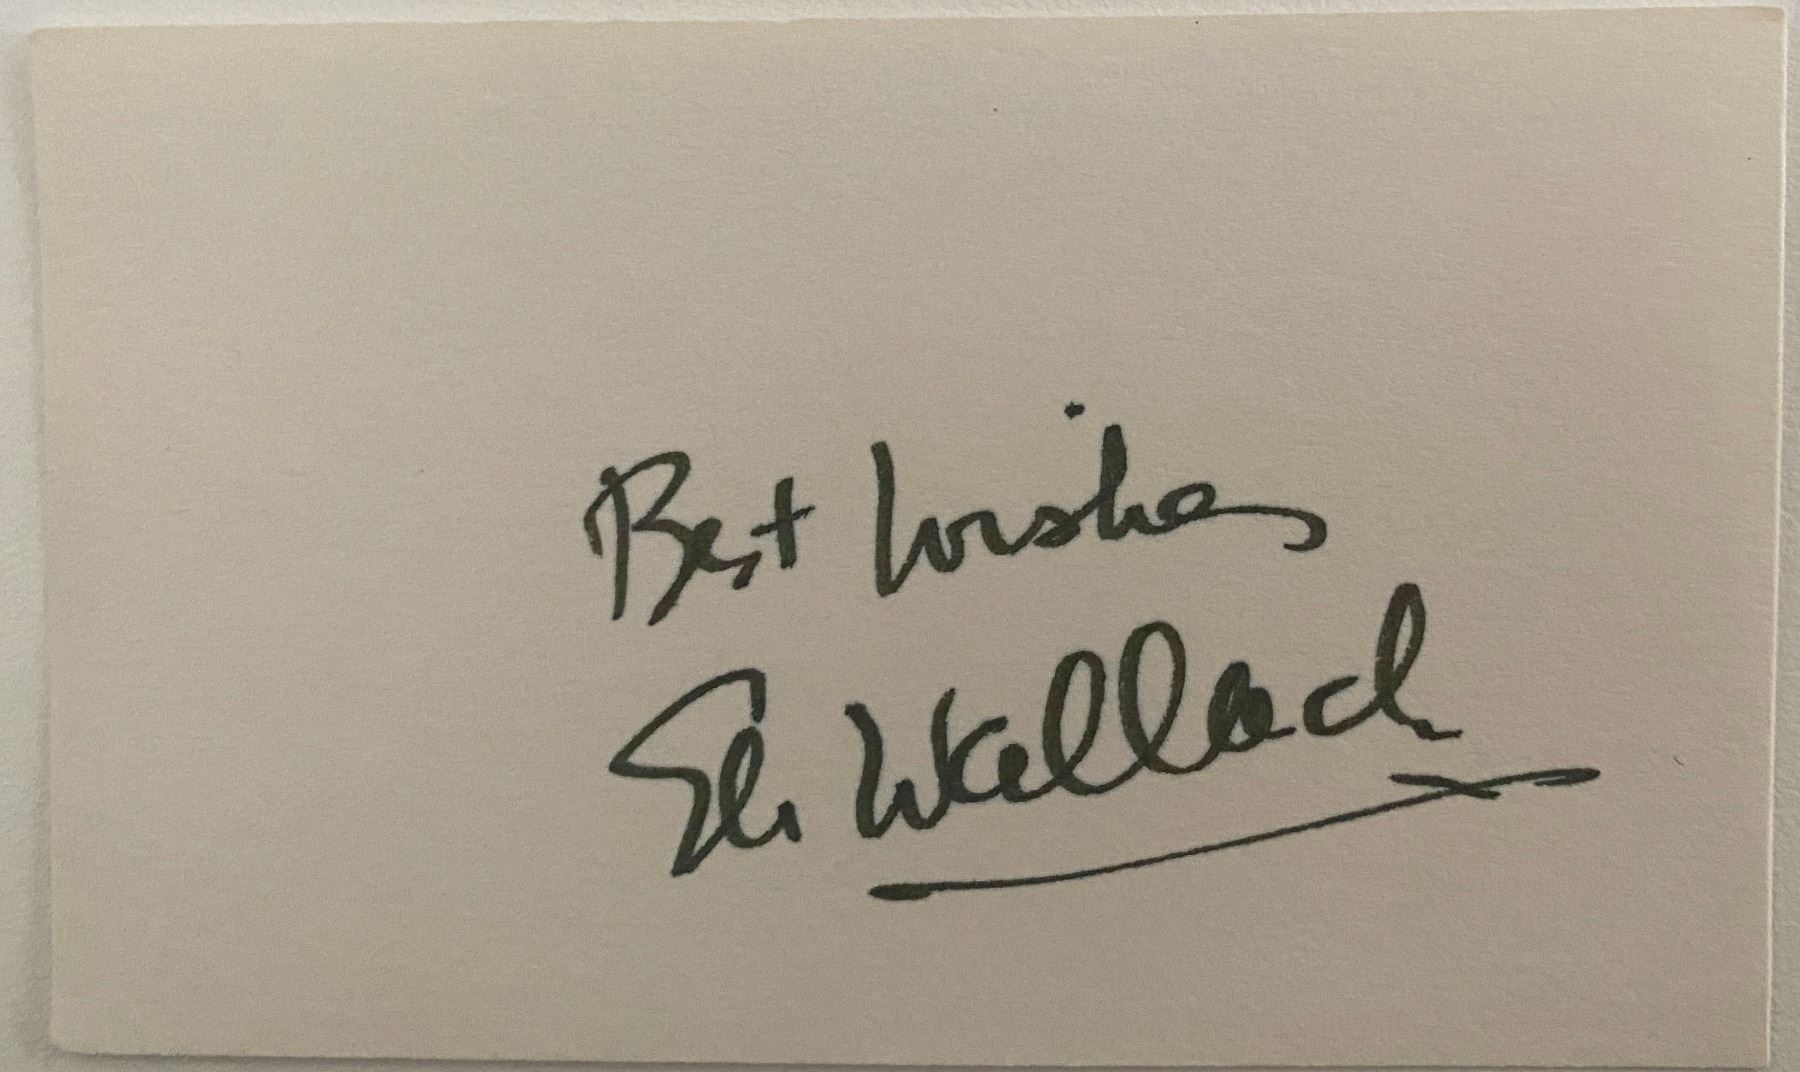 Best Wishes
Eli Wallach